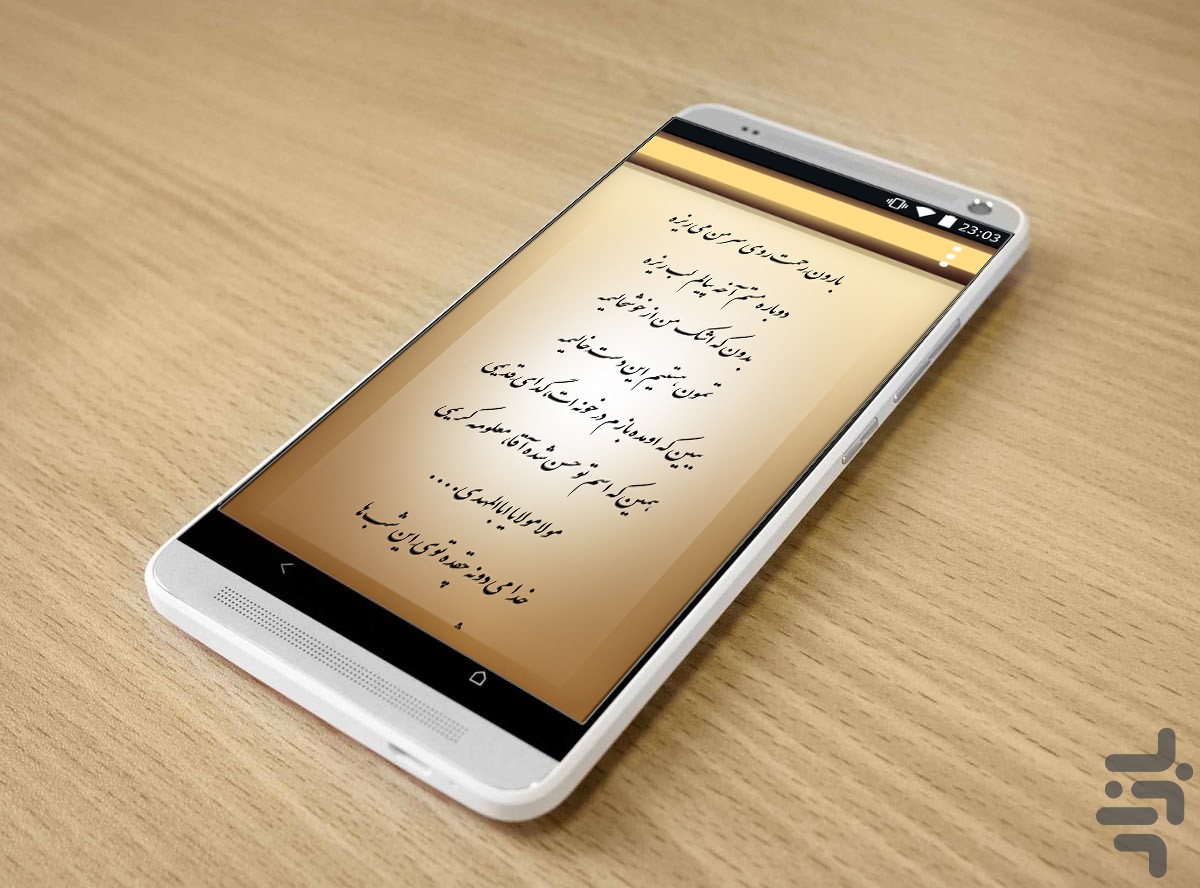 23:03
بارون رحمت روی سر من می ریزه
دوباره مستم آخه پیالم لب ریزه
بدون که اشک من از خوشحالیمه
تمون هستیم این دست خالیمه
ببین که اومده بازم در خونه ات، گدای قدیمی
همین که اسم تو حسن شده آقا، معلومه کریمی
مولا مولا یا ایا المهدی....
خدا می دونه چقده توی این شب ها
بازار